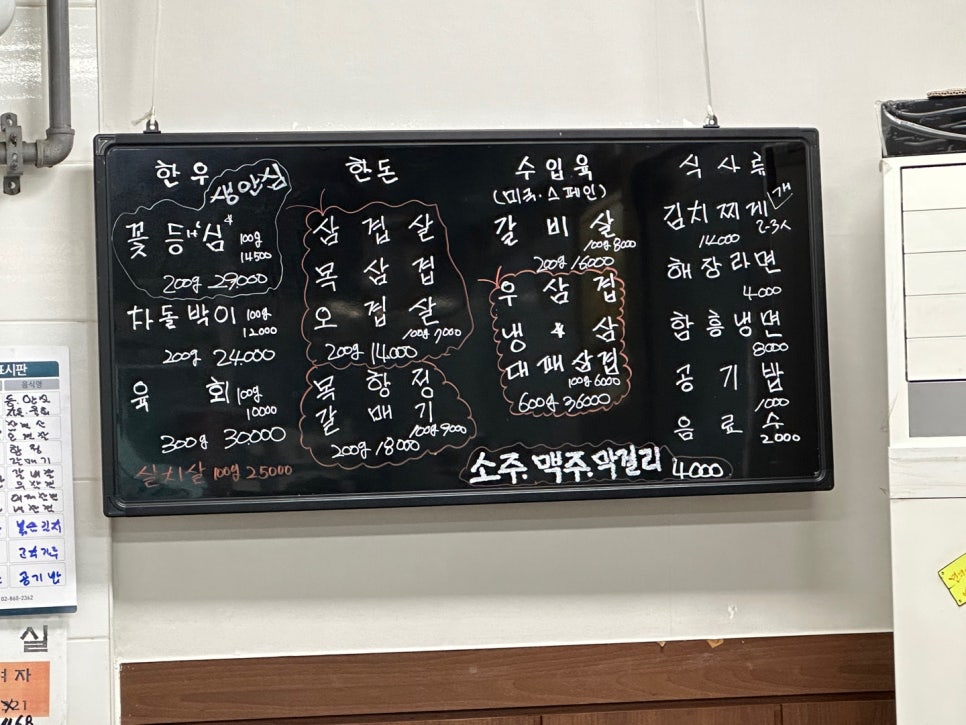 한우
생안심
꽃등심 100g
14500
200g 29000
차돌박이 100g
12000
200g 24000
육 회 100g
10000
300g 30000
살치살 100g 25000
한돈
삼겹살
목삼겹
오겹살
100g 7000
200g 14000
목항정
갈매기
100g 9000
200g 18000
수입육
(미국·스페인)
갈비살
100g 8000
200g 16000
우삼겹
냉 삼
대패삼겹
100g 6000
600g 36000
식사류
김치찌게
2-3人
14000
해장라면
4000
함흥냉면
8000
공기밥
1000
음료수
2000
소주.맥주.막걸리 4000
표시판
음식명
갈매기
공기밥
02-860-2362
실
여자